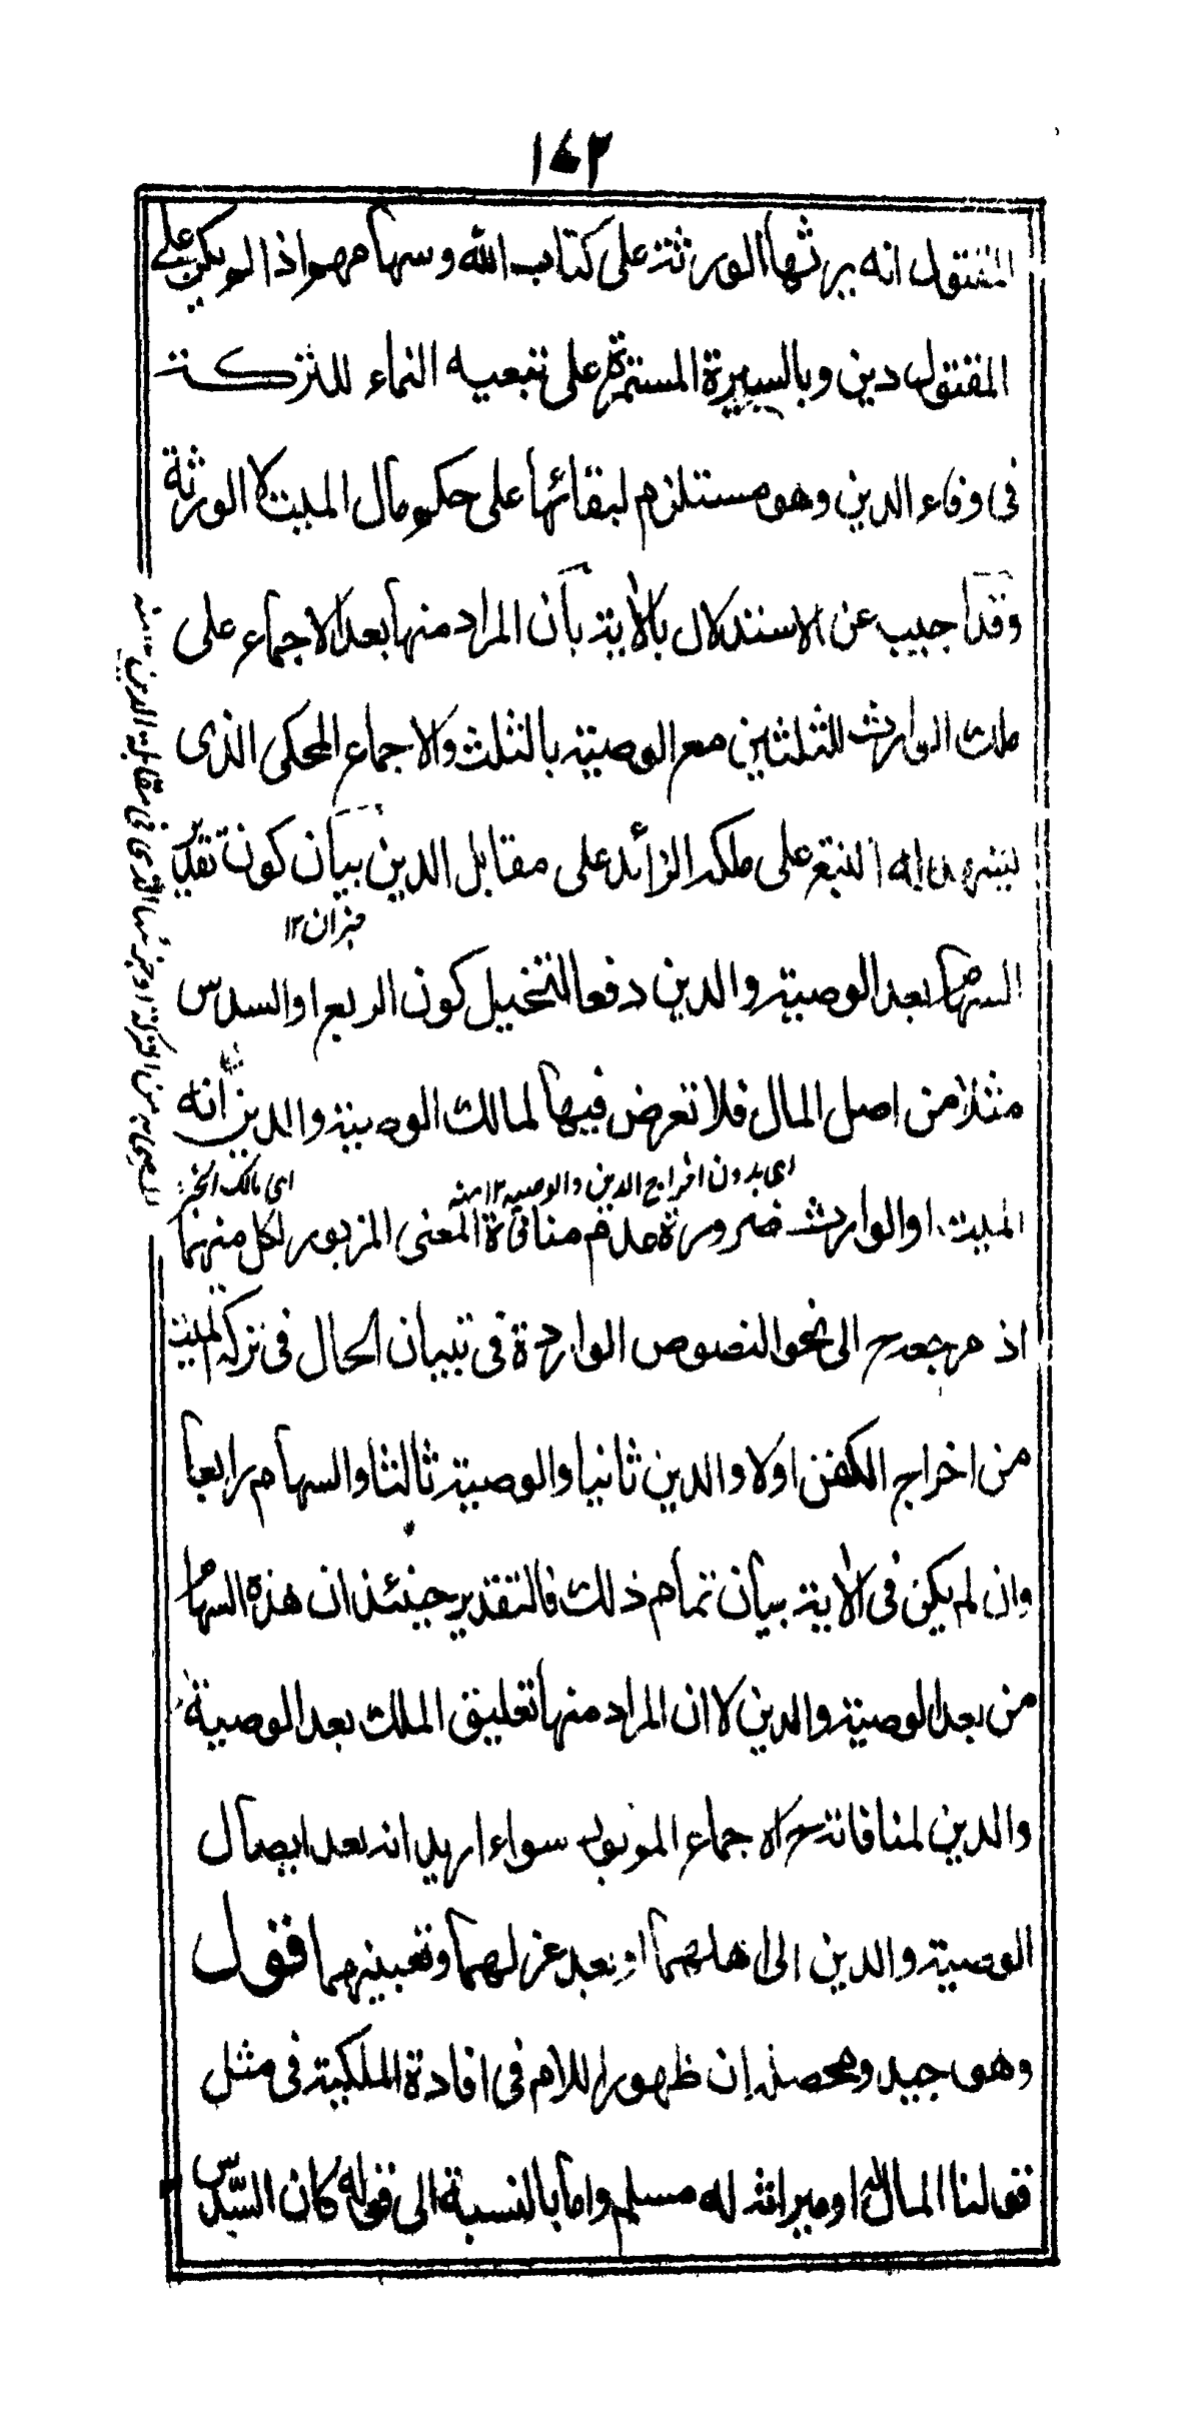 ١٧٢
المقتول انه يرثها الورثة على كتاب الله وسهامهم اذا لم يكن على
المقتول دين وبالسيرة المستمرة على تبعيه النماء للتركة
فى وفاء الدين وهو مستلزم لبقائها على حكم مال الميت لا الورثة
وقد اجيب عن الاستدلال بالاية بان المراد منها بعد الاجماع على
ملك الوارث للثلثين مع الوصية بالثلث والاجماع المحكى الذى
على ملكه الزائد على مقابل الدين بيان كون تقدير
ميزان ١٢
السهام بعد الوصية والدين دفعا لتخيل كون الربع او السدس
مثلا من اصل المال فلا تعرض فيها لمالك الوصية والدين انه
اى بدون اخراج الدين والوصيه ١٢ منه
اى مالك الخ
الميت او الوارث ضرورة عدم منافاة المعنى المزبور لكل منهما
اذ مرجعه ح الى نحو النصوص الواردة فى تبيان الحال فى تركة الميت
من اخراج الكفن اولا والدين ثانيا والوصية ثالثا والسهام رابعا
وان لم يكن فى الاية بيان تمام ذلك فالتقدير حينئذ ان هذه السهام
من بعد الوصية والدين لا ان المراد منها تعليق الملك بعد الوصية
والدين لمنافاته ح الاجماع سواء اريد انه بعد ايصال
الوصية والدين الى اهلهما او بعد عزلهما وتعيينهما اقول
وهو جيد ومحصله ان ظهور اللام فى افادة الملكية فى مثل
قولنا المال او ميراثه له مسلم واما بالنسبة الى قوله كان السدس